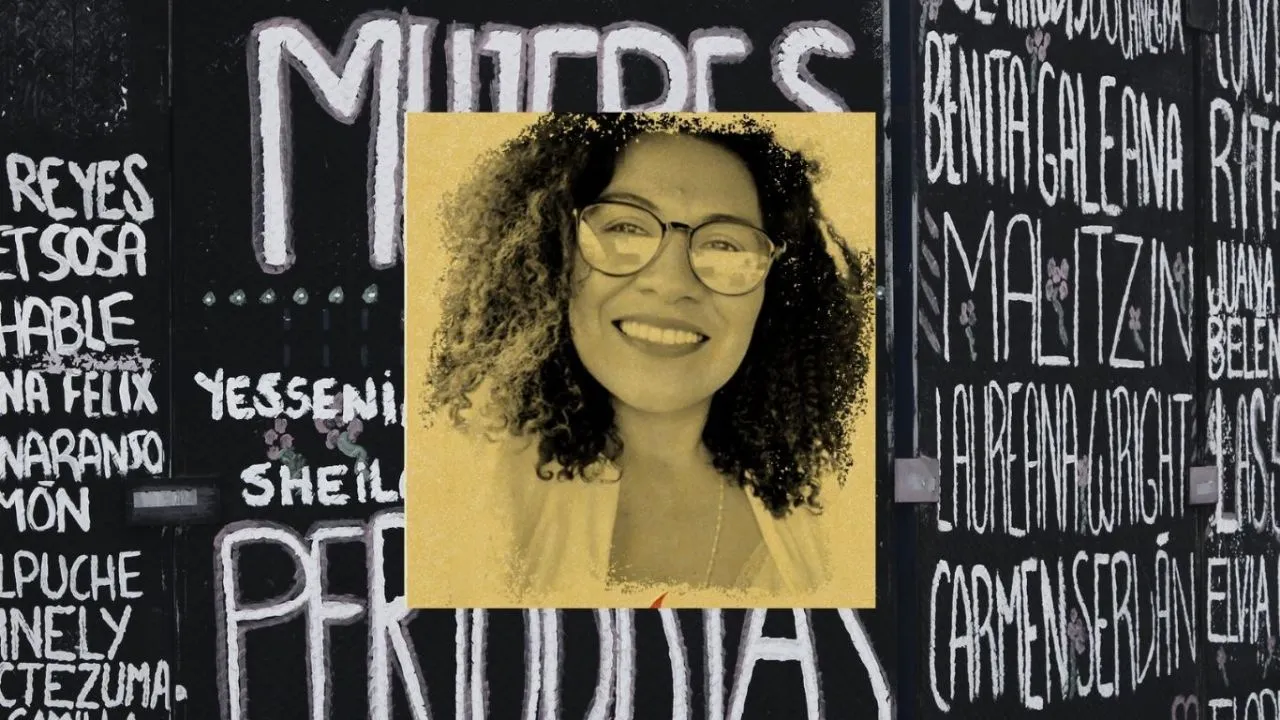 REYES
ET SOSA
HABLE
NA FELIX
NARANJO
MÓN
LPUCHE
NELY
CTEZUMA.
MUJERES
YESSENI
SHEIL
PERIODISTAS
BENITA GALEANA
MALITZIN
LAUREANA WRIGHT
CARMEN SERDÁN
RIT
JUANA
BELEN
LAS
ELVIA